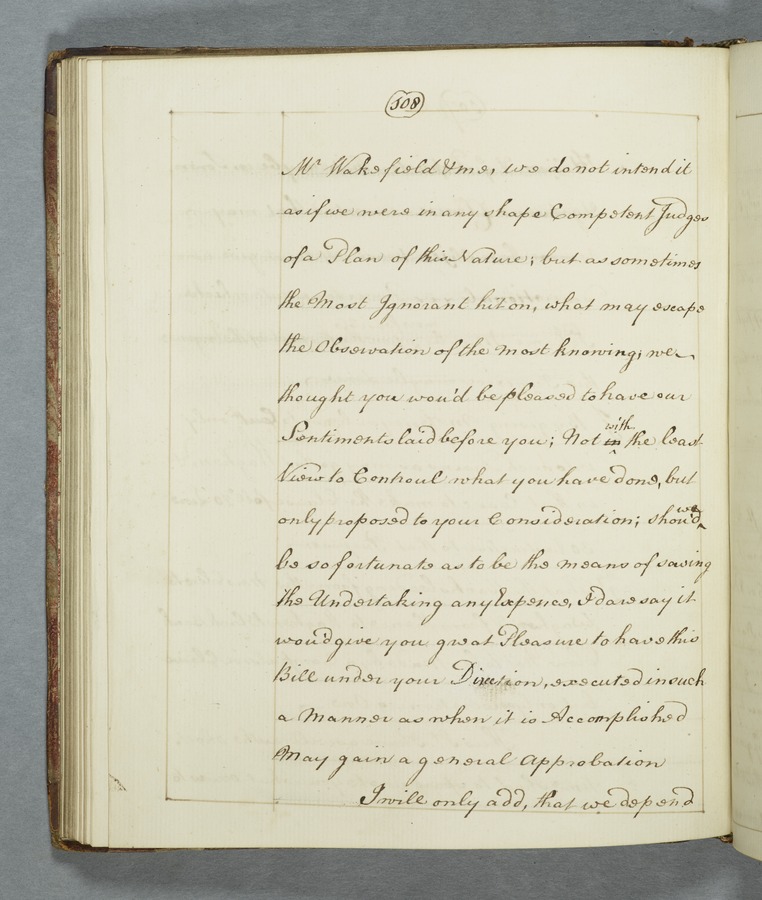 508
Mr Wakefield & me, we do not intend it
as if we were in any shape Competent Judges
of a Plan of this Nature; but as sometimes
the Most Ignorant hit on, what may escape
the Observation of the most knowing; we
thought you wou'd be pleased to have our
Sentiments laid before you; Not in with the least
View to Controul what you have done, but
only proposed to your Consideration; shou'd we
be so fortunate as to be the means of saving
the Undertaking any Expence, I dare say it
wou'd give you great Pleasure to have this
Bill under your Direction, executed in such
a Manner as when it is Accomplished
May gain a general Approbation
I will only add, that we depend